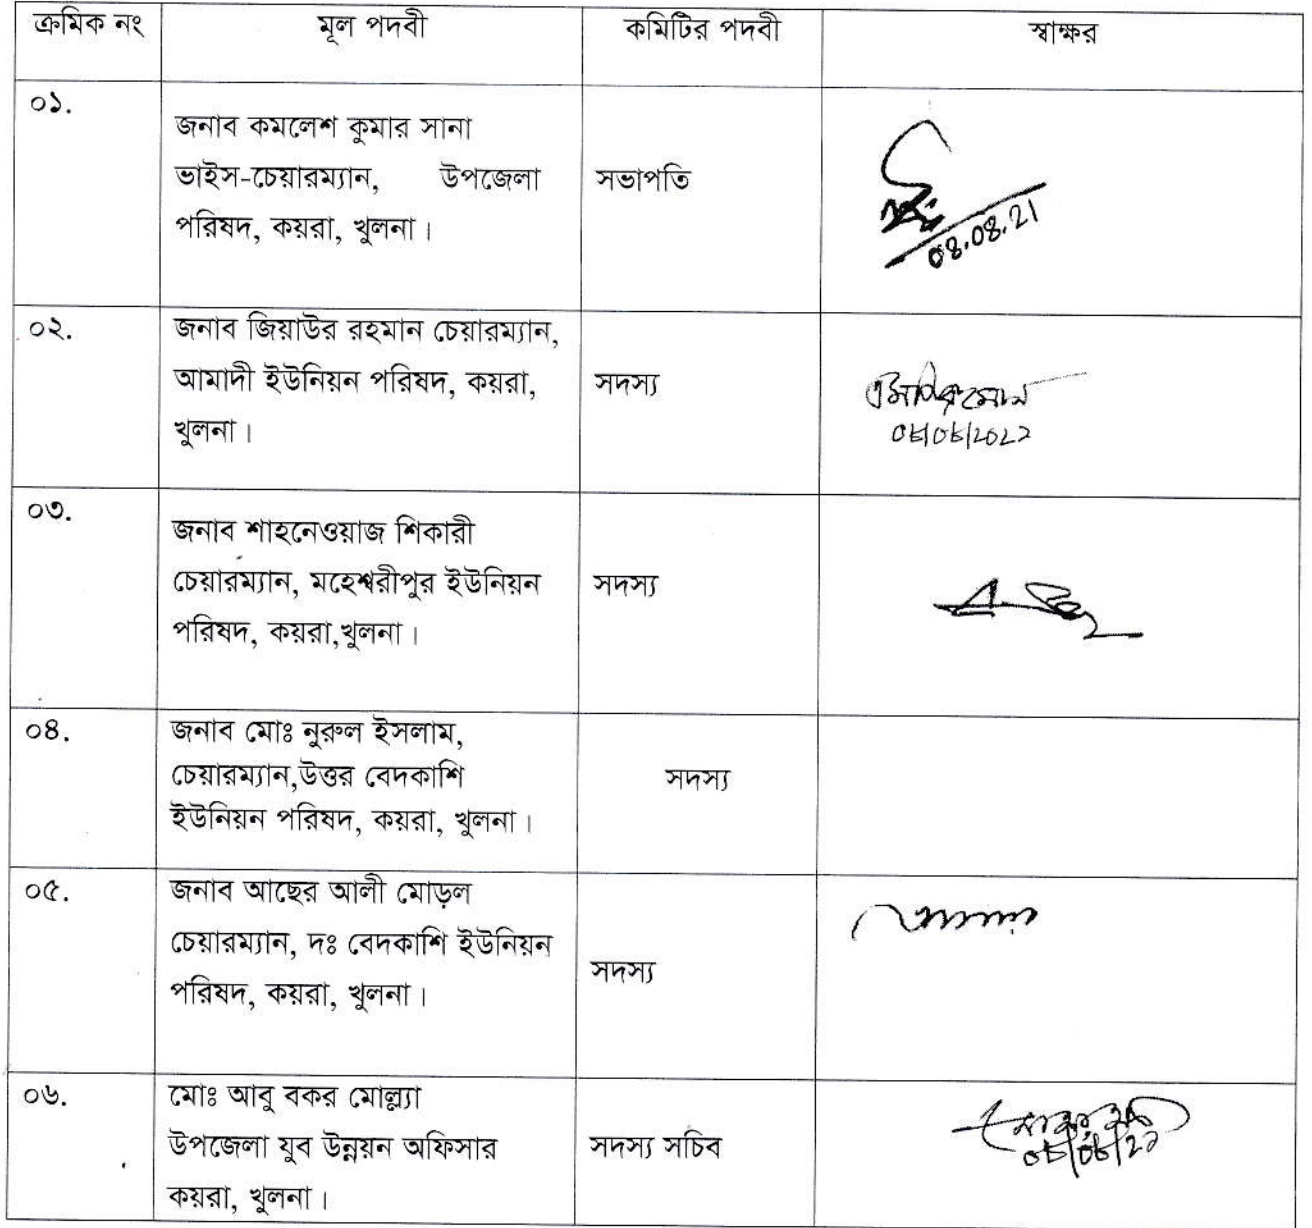 ক্রমিক নং মূল পদবী কমিটির পদবী স্বাক্ষর
০১.
জনাব কমলেশ কুমার সানা
ভাইস-চেয়ারম্যান, উপজেলা
পরিষদ, কয়রা, খুলনা।
সভাপতি
08.08.21
০২.
জনাব জিয়াউর রহমান চেয়ারম্যান,
আমাদী ইউনিয়ন পরিষদ, কয়রা,
খুলনা।
সদস্য
০৩.
জনাব শাহনেওয়াজ শিকারী
চেয়ারম্যান, মহেশ্বরীপুর ইউনিয়ন
পরিষদ, কয়রা,খুলনা।
সদস্য
০৪.
জনাব মোঃ নুরুল ইসলাম,
চেয়ারম্যান,উত্তর বেদকাশি
ইউনিয়ন পরিষদ, কয়রা, খুলনা।
সদস্য
০৫.
জনাব আছের আলী মোড়ল
চেয়ারম্যান, দঃ বেদকাশি ইউনিয়ন
পরিষদ, কয়রা, খুলনা।
সদস্য
০৬.
মোঃ আবু বকর মোল্ল্যা
উপজেলা যুব উন্নয়ন অফিসার
কয়রা, খুলনা।
সদস্য সচিব